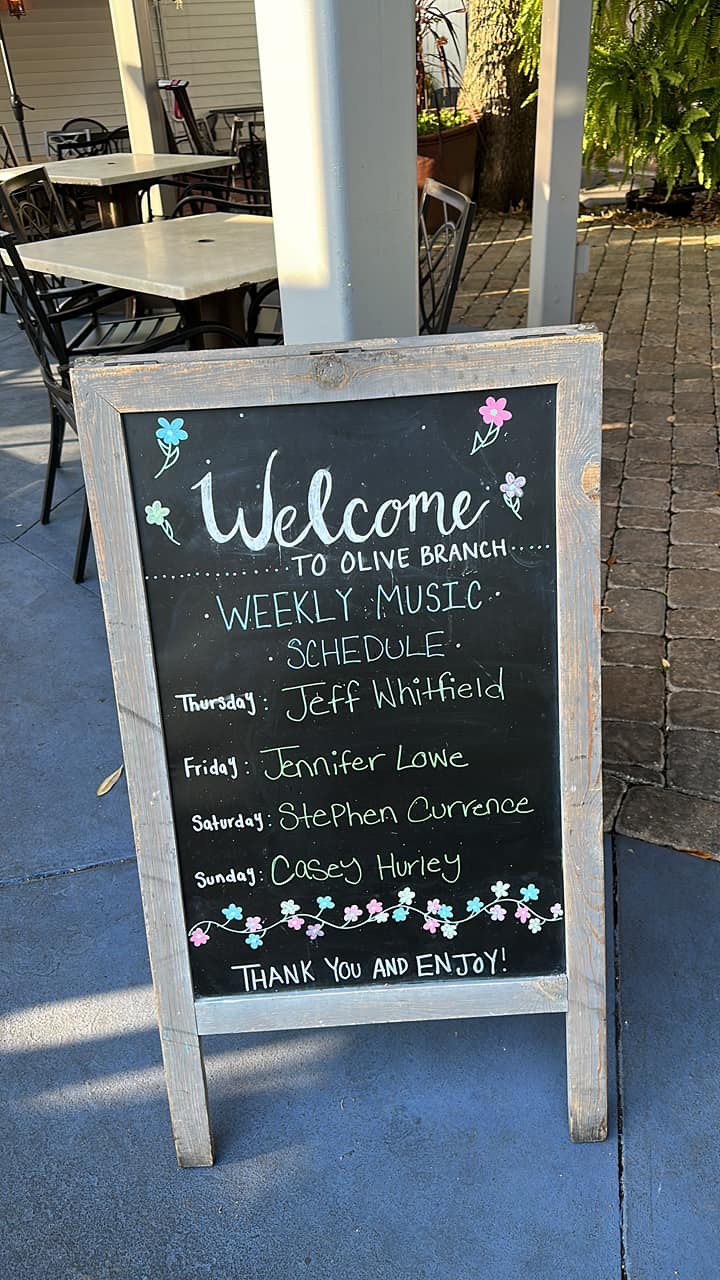 Welcome
TO OLIVE BRANCH
WEEKLY MUSIC
SCHEDULE
Thursday: Jeff Whitfield
Friday: Jennifer Lowe
Saturday: Stephen Currence
Sunday: Casey Hurley
THANK YOU AND ENJOY!